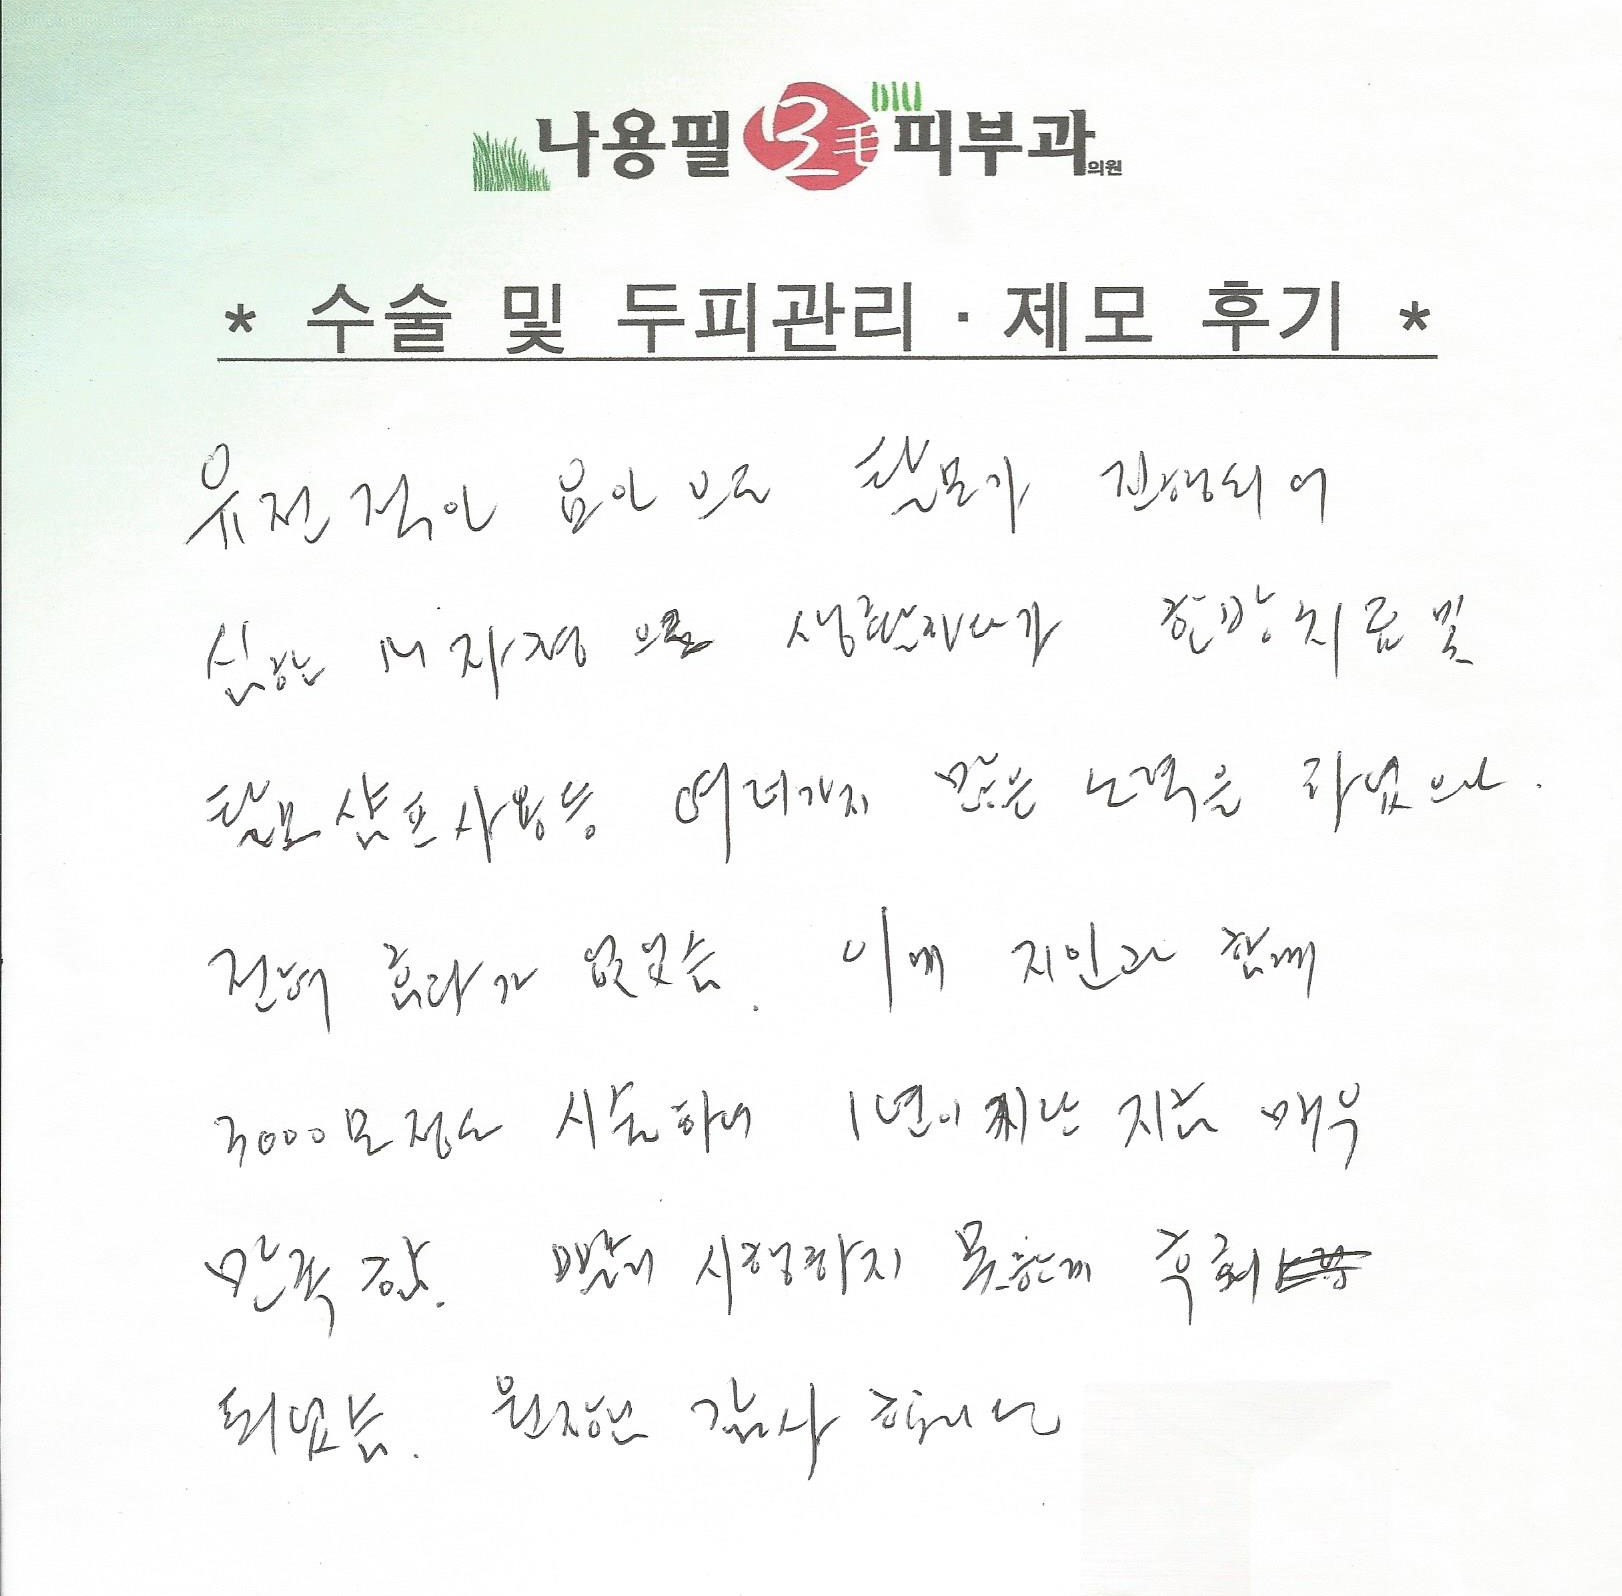 나용필 모毛 피부과의원
* 수술 및 두피관리 · 제모 후기 *
유전적인 요인으로 탈모가 진행되어
심한 내자격으로 생활하다가 한방치료 및
탈모샴프사용등 여러가지 많은 노력을 하였으나.
전혀 효과가 없었음. 이에 지인과 함께
3000모정도 시술하여 1년이 지난 지금 매우
만족함. 빨리 시행하지 못한게 후회
되었음. 원장님 감사합니다